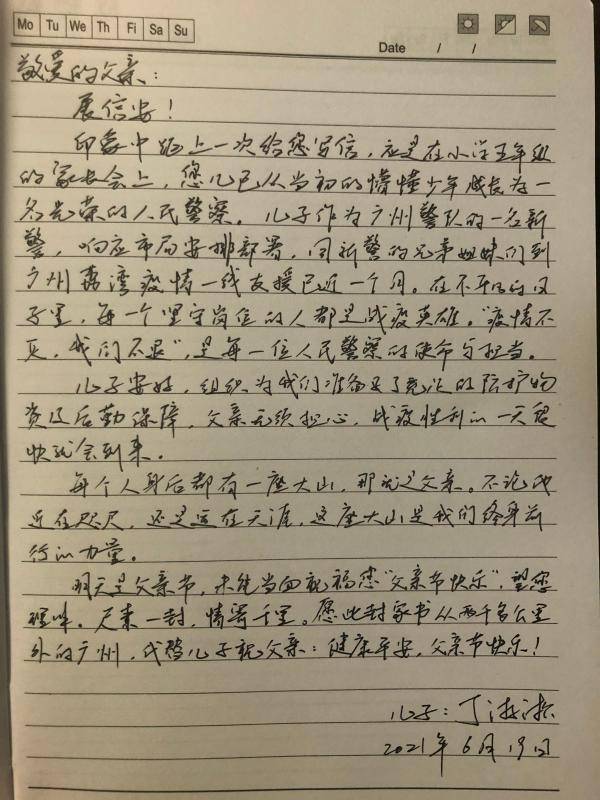 Mo Tu We Th Fi Sa Su
Date / /
敬爱的父亲：
展信安！
印象中距上一次给您写信，应是在小学五年级
的家长会上，您儿已从当初的懵懂少年成长为一
名光荣的人民警察。儿子作为广州警队的一名新
警，响应市局安排部署，同新警的兄弟姐妹们到
广州荔湾疫情一线支援已近一个月。在不平凡的日
子里，每一个坚守岗位的人都是战疫英雄。“疫情不
灭，我们不退”，是每一位人民警察的使命与担当。
儿子安好，组织为我们准备足了充沛的防护物
资及后勤保障，父亲无须担心，战疫胜利的一天很
快就会到来。
每个人身后都有一座大山，那就是父亲。不论
近在咫尺，还是远在天涯，这座大山是我们终身前
行的力量。
明天是父亲节，未能当面祝福您“父亲节快乐”，望您
理解。尺素一封，情寄千里。愿此封家书从两千多公里
外的广州，代替儿子祝父亲：健康平安，父亲节快乐！
儿子：丁
2021年6月19日